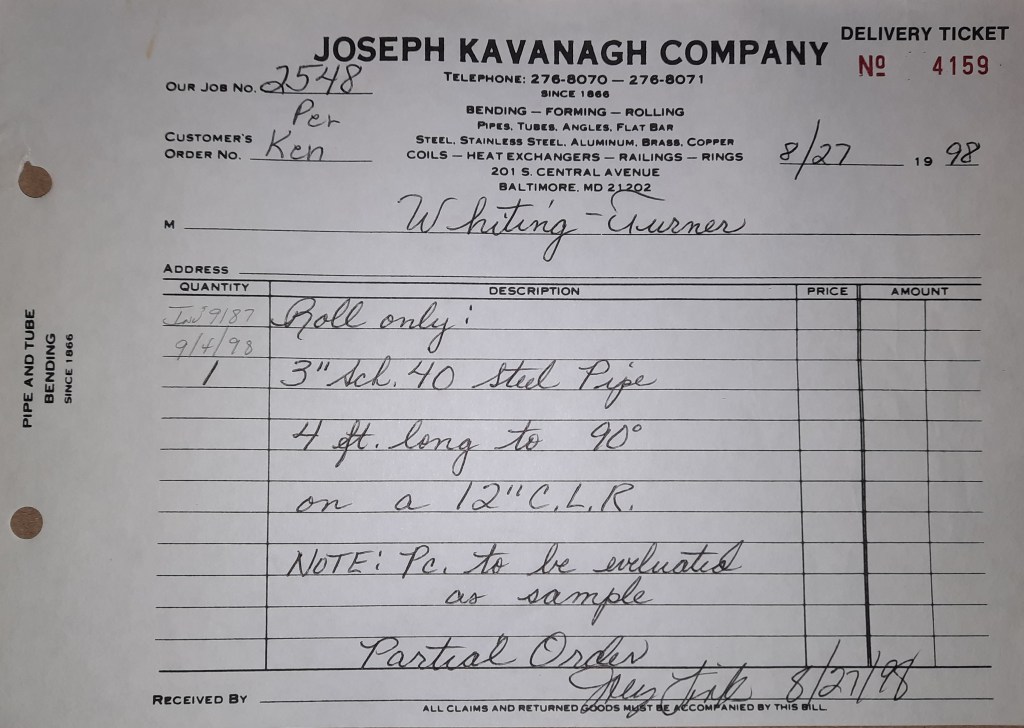 DELIVERY TICKET
JOSEPH KAVANAGH COMPANY
Nº 4159
TELEPHONE: 276-8070 — 276-8071
SINCE 1866
OUR JOB NO. 2548
BENDING — FORMING — ROLLING
PIPES, TUBES, ANGLES, FLAT BAR
STEEL, STAINLESS STEEL, ALUMINUM, BRASS, COPPER
COILS — HEAT EXCHANGERS — RAILINGS — RINGS
201 S. CENTRAL AVENUE
BALTIMORE, MD 21202
Per
CUSTOMER'S
ORDER NO. Ken
8/27 19 98
M Whiting-Turner
ADDRESS
QUANTITY DESCRIPTION PRICE AMOUNT
Inv 9187 Roll only:
9/4/98
1 3" Sch. 40 Steel Pipe
4 ft. long to 90°
on a 12" C.L.R.
NOTE: Pc. to be evaluated
as sample
Partial Order
RECEIVED BY 8/27/98
ALL CLAIMS AND RETURNED GOODS MUST BE ACCOMPANIED BY THIS BILL
PIPE AND TUBE
BENDING
SINCE 1866